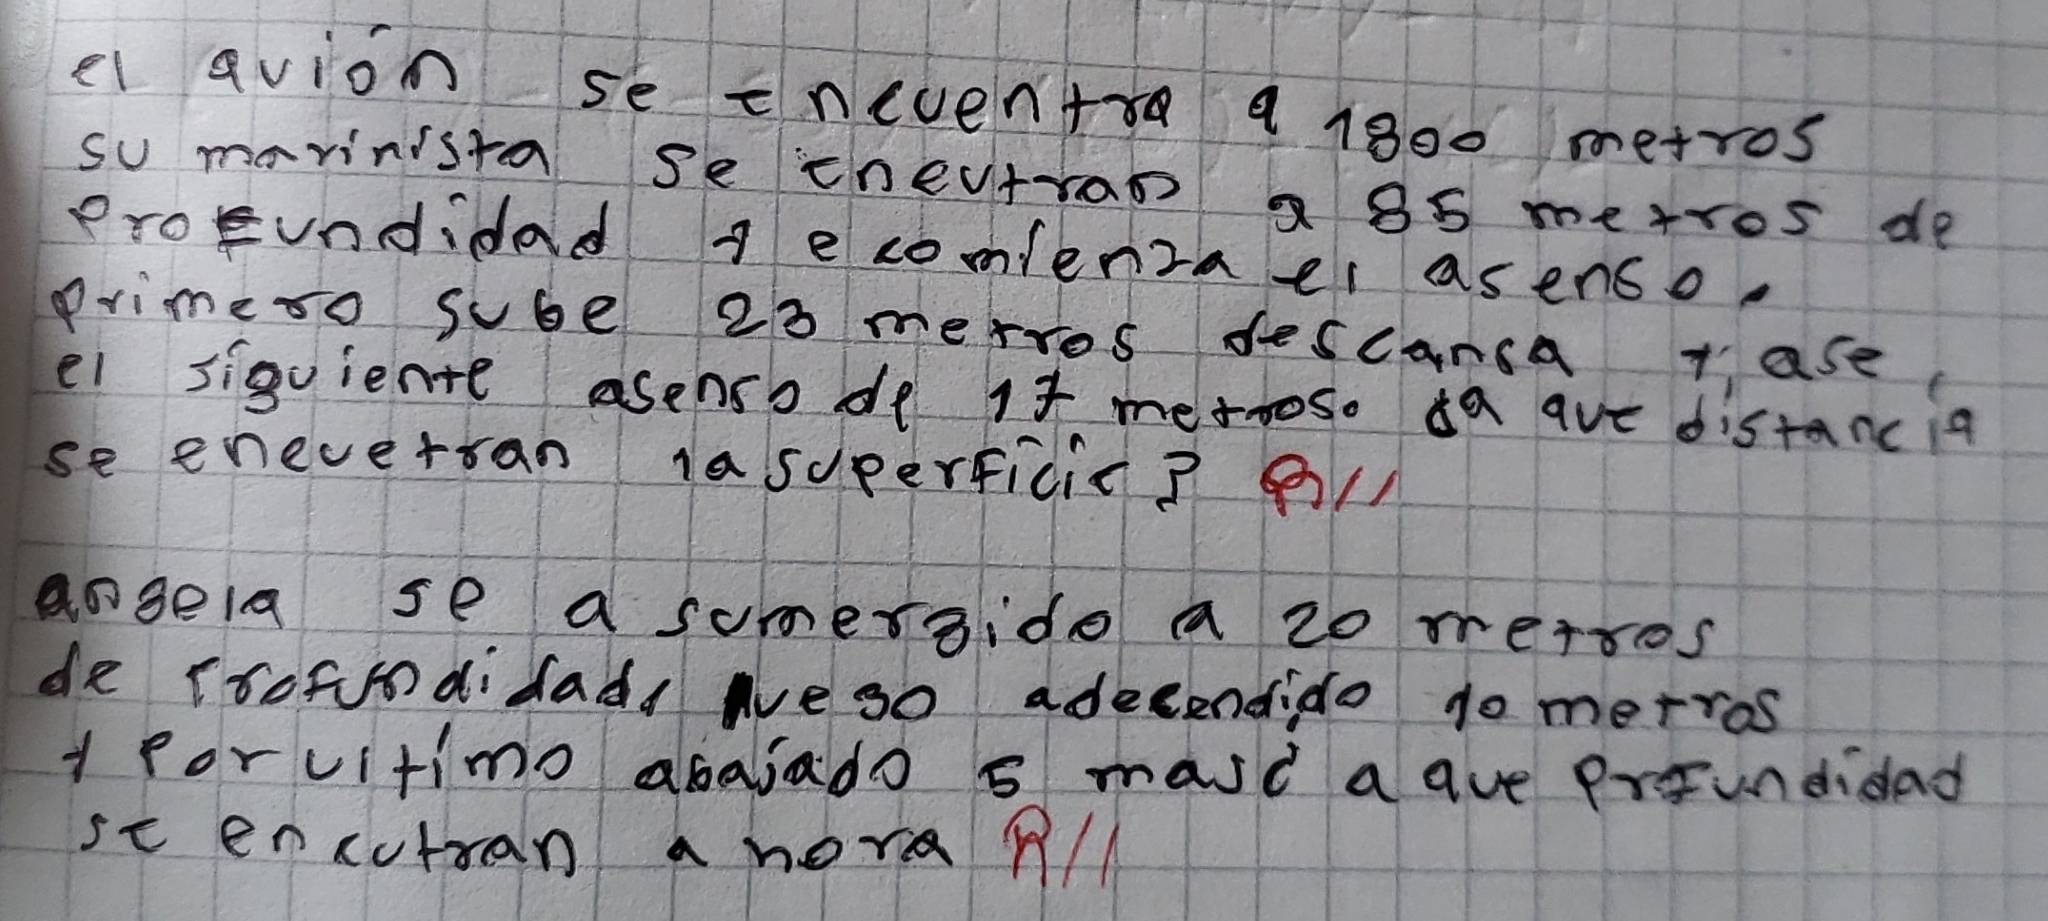 el avión se encuentra a 1800 metros
su marinista se eneutran a 85 metros de
profundidad y e comienza el asenso.
primero sube 23 metros descansa y ase
el siguiente asenso de 17 metros. ¿a que distancia
se enecuetran la superficie? R//
angela se a sumergido a 20 metros
de profundidad, luego adecendido 10 metros
y por ultimo abajado 5 mas¿ a que profundidad
se encutran ahora R//